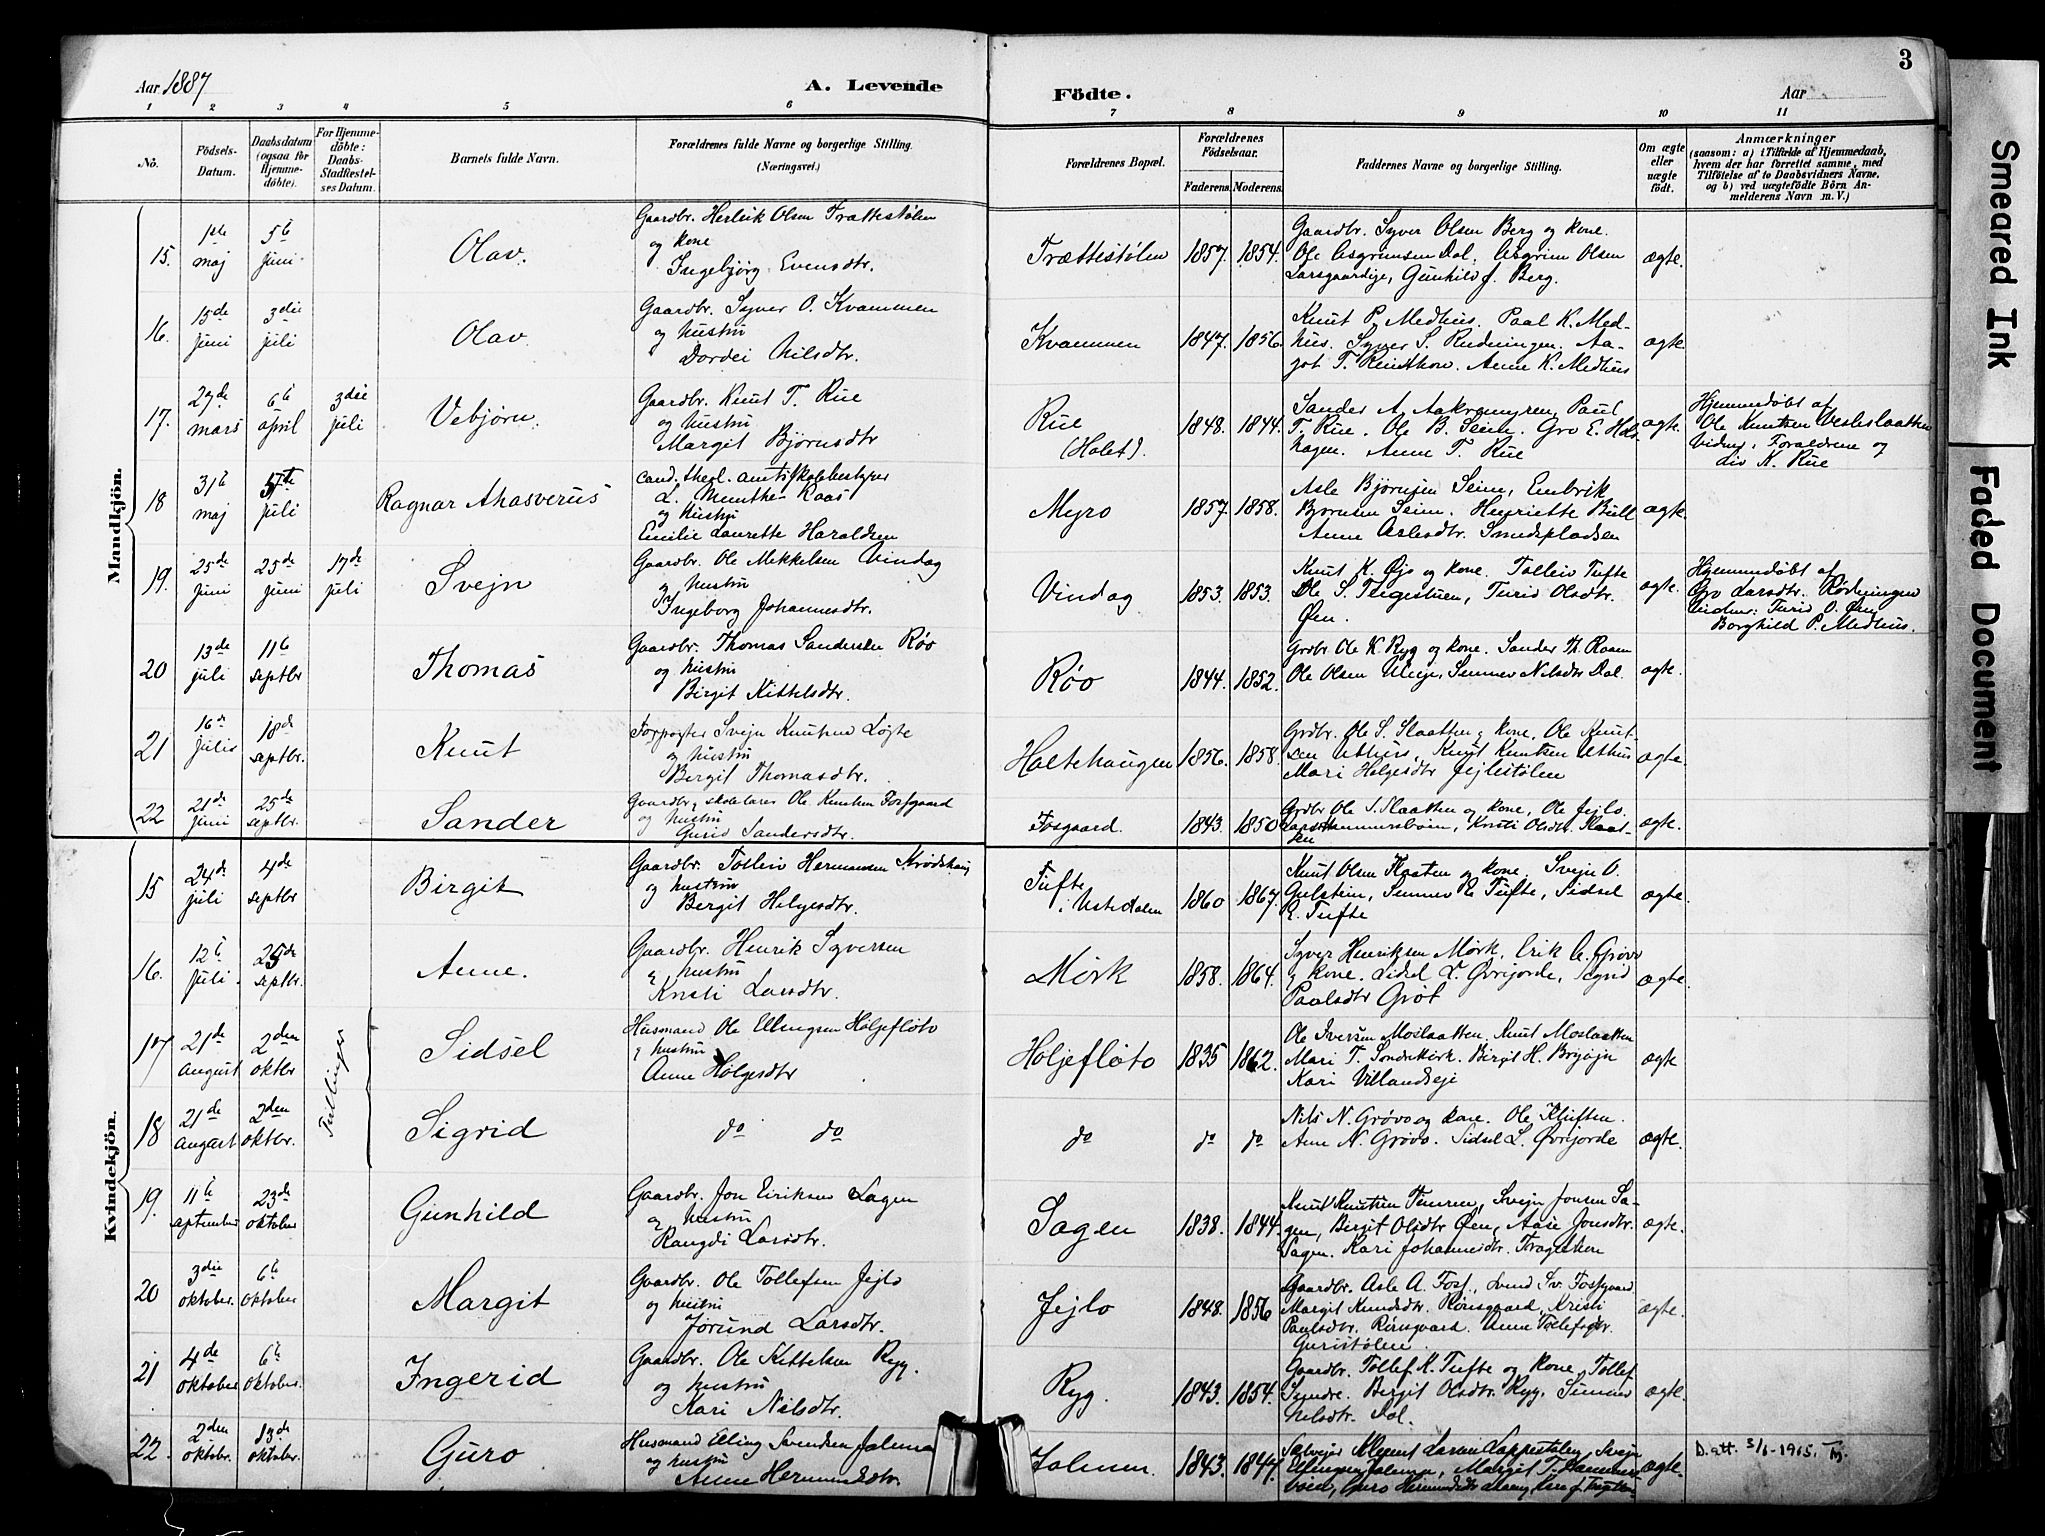 Aar 1887
A. Levende
Födte.
Aar
3
1 2 3 4 5 6 7 8 9 10 11
No.
Födsels-
Datum.
Daabsdatum
(ogsaa for
Hjemme-
döbte).
For Hjemme-
döbte:
Daabs-
Stadfæstel-
ses Datum.
Barnets fulde Navn.
Forældrenes fulde Navne og borgerlige Stilling.
(Næringsvei.)
Forældrenes Bopæl.
Forældrenes
Födselsaar.
Faderens. Moderens.
Faddernes Navne og borgerlige Stilling.
Om ægte
eller
uægte
födt.
Anmærkninger
(saasom: a) i Tilfælde af Hjemmedaab,
hvem der har forrettet samme, med
Tilföielse af to Daabsvidners Navne,
og b) ved uægtefödte Börn An-
melderens Navn m. V.)
Mandkjön.
15. 1ste maj 5te juni Olav.
Gaardbr. Herleik Olsen Trættestølen
og kone
Ingebjørg Evensdtr.
Trættestølen 1857. 1854.
Gaardbr. Syver Olsen Berg og kone.
Ole Asgrimsen Dal, Asgrim Olsen
Larsgaardige, Gunhild J. Berg.
ægte.
16. 15de juni 3die juli Olav.
Gaardbr. Syver O. Kvammen
og hustru
Dordei Nilsdtr.
Kvammen 1847. 1856.
Knut P. Medhus. Paal K. Med-
hus. Syver S. Rudningen. Aa-
got T. Ruudthon. Anne K. Medhus
ægte.
17. 27de mars 6te april 3die juli Vebjørn.
Gaardbr. Knut T. Rue
og hustru
Margit Bjørnsdtr
Rue
(Holet).
1848. 1844.
Sander A. Aakremyren, Paul
T. Rue. Ole B. Seim. Gro E. Hols-
hagen. Anne T. Rue
ægte.
Hjemmedøbt af
Ole Knutsen Vesleslaatten
Vidner, Forældrene og
Liv K. Rue
18 31te maj 5te juli Ragnar Ahasverus
cand. theol. amtsskolebestyrer
L. Munthe-Kaas
og hustru
Emilie Laurette Haraldsen
Myro 1857. 1858.
Asle Bjørnsen Seim, Embrik
Bjørnsen Seim. Henriette Bull
Anne Aslesdtr. Smedspladsen
ægte.
19. 25de juni 25de juni 17de juli Svejn
Gaardbr. Ole Mekkelsen Vindag
og hustru
Ingeborg Johannesdtr.
Vindag 1853. 1853.
Knut K. Øjo og kone. Tolleiv Tufte
Ole S. Teigestuen, Turid Olsdtr.
Øen.
ægte.
Hjemmedøbt af
Gro Larsdtr. Rødningen
Vidner: Turid O. Øen
Borghild P. Medhus.
20 13de juli 11te septbr Thomas
Gaardbr. Thomas Sandersen Røo
og hustru
Birgit Kittelsdtr.
Røo 1844. 1852.
Grdbr Ole K. Ryg og kone. Sander Th. Raaen
Ole Olsen Sunnev Nilsdtr Dal.
ægte.
21 16de julis 18de septbr. Knut
Forpagter Svejn Knutsen Løgte
og hustru
Bergit Thomasdtr.
Holtehaugen 1856. 1858.
Grdbr. Ole S. Slaatten og kone. Ole Knut-
sen Uthus, Knut Knutsen Uthus
Mari Holgesdtr Jejlestølen
ægte.
22 21de juni 25de septbr. Sander
Gaardbr. og skolelærer Ole Knutsen Fosgaard
og hustru
Guri Sandersdtr.
Fosgaard. 1843. 1850
Grdbr Ole S. Slaatten og kone, Ole Jejlo.
Hammersbøen, Kristi Olsdtr. Slaat-
ten
ægte.
Kvindekjön.
15 24de juli 4de septbr Birgit
Gaardbr. Tolleiv Hermansen Skrødshaug
og hustru
Bergit Helgesdtr.
Tufte
i Ustedalen
1860 1867.
Knut Olsen Haaten og kone. Svejn O.
Gulstein, Sunnev E. Tufte, Sidsel
E. Tufte
ægte.
16. 12te juli. 25de septbr. Anne.
Gaardbr. Henrik Syversen
og hustru
Kristi Larsdtr.
Mørk 1858. 1864.
Syver Henriksen Mørk, Erik A. Grøvo
og kone. Sidsel L. Øvrejorde, Sigrid
Paulsdtr Grøt
ægte.
17 21de august 2den oktbr Sidsel
Tvillinger
Husmand Ole Ellingsen Holjefløto
og hustru
Anne Holgesdtr
Holjefløto 1835 1862.
Ole Iversen Moslaatten, Knut Moslaatten
Mari T. Sondrekirk. Birgit H. Bryøjn
Kari Villandseje
ægte
18 21de august 2den oktbr. Sigrid
do do
do do do
Nils N. Grøvo og kone. Ole Kluften.
Anne N. Grøvo. Sidsel L. Øvrejorde
ægte.
19. 11te september 23de oktober Gunhild
Gaardbr. Jon Eiriksen Sagen
og hustru
Rangdi Larsdtr.
Sagen 1838. 1844.
Knut Knutsen Tuuren, Svejn Jonsen Sa-
gen, Birgit Olsdtr Øen, Aase Jonsdtr.
Sagen. Kari Johannesdtr. Trageteien
ægte.
20 3die oktober. 6te oktober Margit
Gaardbr. Ole Tollefsen Jejlo
og hustru
Jorund Larsdtr.
Jejlo 1848. 1856
Gaardbr. Asle A. Foss., Svend Sv. Fossgaard
Margit Knudsdtr. Rønsgaard, Kristi
Paulsdtr. Rønsgaard. Anne Tollefsdtr.
Guristølen
ægte.
21 4de oktober 6te oktober. Ingerid
Gaardbr. Ole Kittelsen Ryg.
og hustru
Kari Nilsdtr.
Ryg. 1843. 1854.
Gaardbr. Tollef K. Tufte og kone, Tollef
Sundre. Bergit Olsdtr. Ryg, Sunnev
Nilsdtr. Dal.
ægte.
22. 2den oktobr. 23de oktober. Guro
Husmand Elling Svendsen Jolmen
og hustru
Anne Hermundsdtr.
Jolmen. 1843. 1847.
Selvejer Klemet Larsen Lappestølen, Svejn
Ellingsen Jolmen, Margit T. Hammers-
bøen, Guro Hermundsdtr
ægte.
D. att. 5/6-1915. Tj.
Smeared Ink
Faded Document